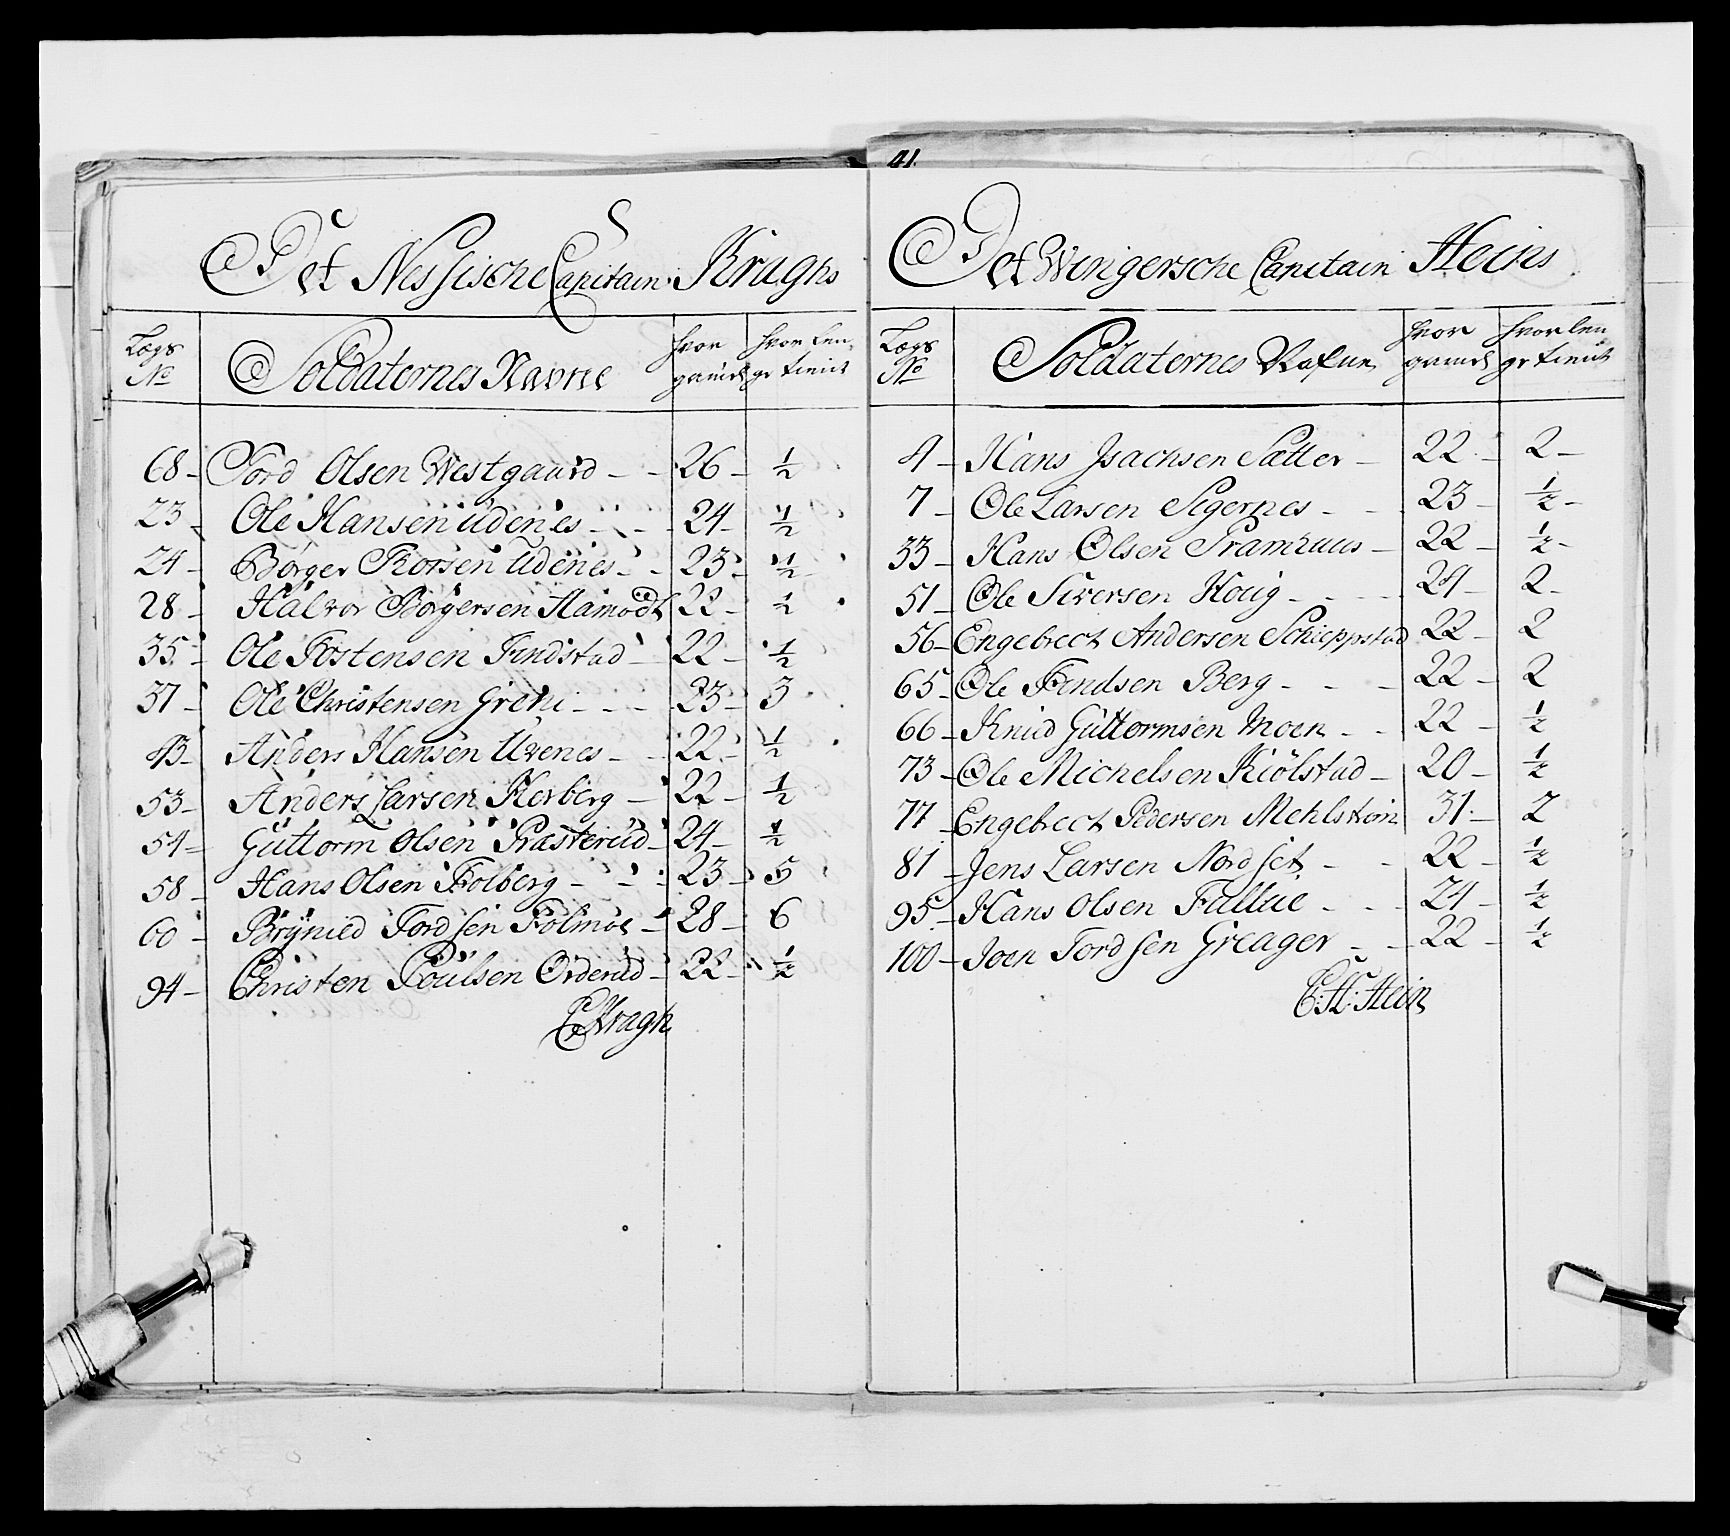 Det Nessische Capitain Kraghs
Lægs No
Soldaternes Navne
hvor gamel
hvor len ge tient
68 Tord Olsen Westgaard 26 1/2
23 Ole Hansen Udenes 24 1/2
24 Børger Udenes 23 1/2
28 Halvor Børgersen Hamodt 22 1/2
35 Ole Tostensen Findstad 22 1/2
37 Ole Christensen Greni 23 3
43 Anders Hansen Uvenes 22 1/2
53 Anders Larsen Herberg 22 1/2
54 Guttorm Olsen Præsterud 24 1/2
58 Hans Olsen Folberg 23 5
60 Brynild Tordsen Folmoe 28 6
94 Christen Poulsen Orderud 22 1/2
Kragh
41.
Det Wingersche Capitain Heins
Lægs No
Soldaternes Nafne
hvor gamel
hvor len ge tient
4 Hans Jsachsen Sætter 22 2
7 Ole Larsen Sigernes 23 1/2
33 Hans Olsen 22 1/2
51 Ole Siversen Houg 24 2
56 Engebrect Andersen Schieppstad 22 2
65 Ole Findsen Berg 22 2
66 Knud Guttormsen Moen 22 1/2
73 Ole Michelsen Kiölstad 20 1/2
77 Engebrect Pedersen Mehlstom 31 2
81 Jens Larsen Nordset 22 1/2
95 Hans Olsen Fallue 24 1/2
100 Joen Tordsen Greager 22 1/2
C: H: Hein